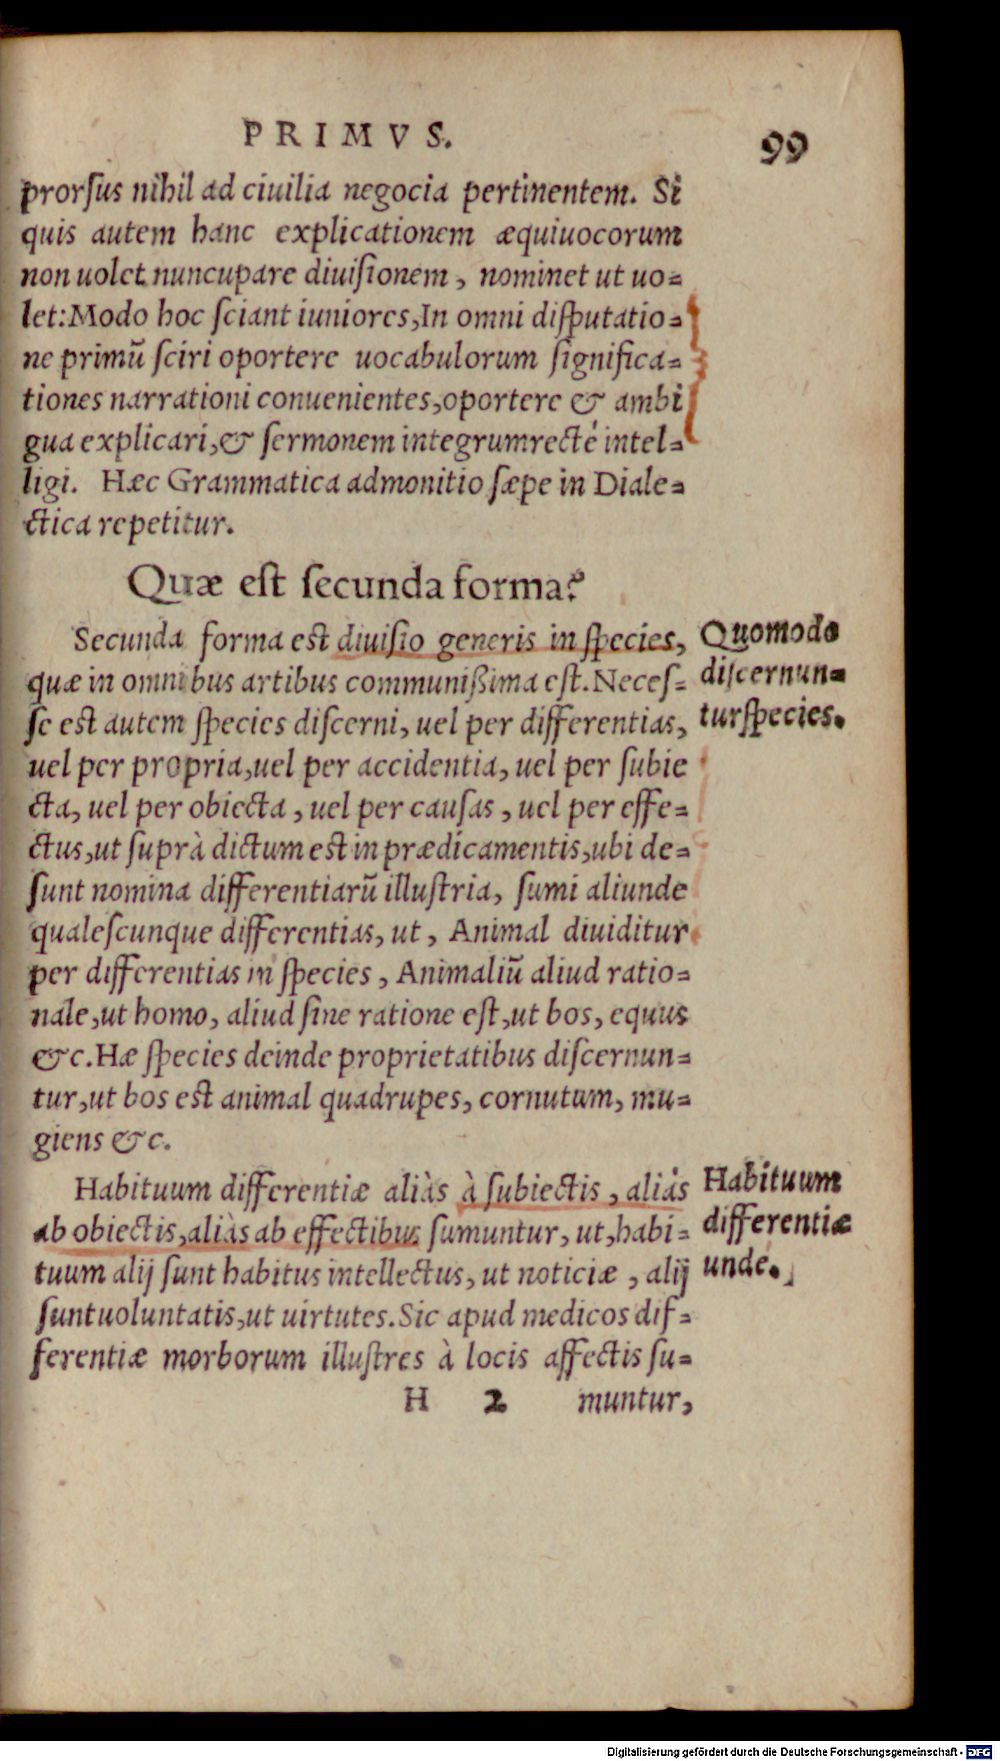 PRIMVS.
99
prorſus nihil ad ciuilia negocia pertinentem. Si
quis autem hanc explicationem æquiuocorum
non uolet nuncupare diuiſionem, nominet ut uo-
let: Modo hoc ſciant iuniores, In omni diſputatio-
ne primū ſciri oportere uocabulorum ſignifica-
tiones narrationi conuenientes, oportere & ambi
gua explicari, & ſermonem integrum rectè intel-
ligi. Hæc Grammatica admonitio ſæpe in Diale-
ctica repetitur.
Quæ eſt ſecunda forma?
Secunda forma est diuiſio generis in ſpecies,
quæ in omnibus artibus communißima eſt. Neceſ-
ſe est autem ſpecies diſcerni, uel per differentias,
uel per propria, uel per accidentia, uel per ſubie
cta, uel per obiecta, uel per cauſas, uel per effe-
ctus, ut ſuprà dictum est in prædicamentis, ubi de-
ſunt nomina differentiarū illuſtria, ſumi aliunde
qualeſcunque differentias, ut, Animal diuiditur
per differentias in ſpecies, Animaliū aliud ratio-
nale, ut homo, aliud ſine ratione eſt, ut bos, equus
&c. Hæ ſpecies deinde proprietatibus diſcernun-
tur, ut bos est animal quadrupes, cornutum, mu-
giens &c.
Quomodo
diſcernun-
tur ſpecies.
Habituum differentiæ aliàs à ſubiectis, aliàs
ab obiectis, aliàs ab effectibus ſumuntur, ut, habi-
tuum alij ſunt habitus intellectus, ut noticiæ, alij
ſunt uoluntatis, ut uirtutes. Sic apud medicos dif-
ferentiæ morborum illuſtres à locis affectis ſu-
Habituum
differentiæ
unde.
H 2 muntur,
Digitalisierung gefördert durch die Deutsche Forschungsgemeinschaft - DFG